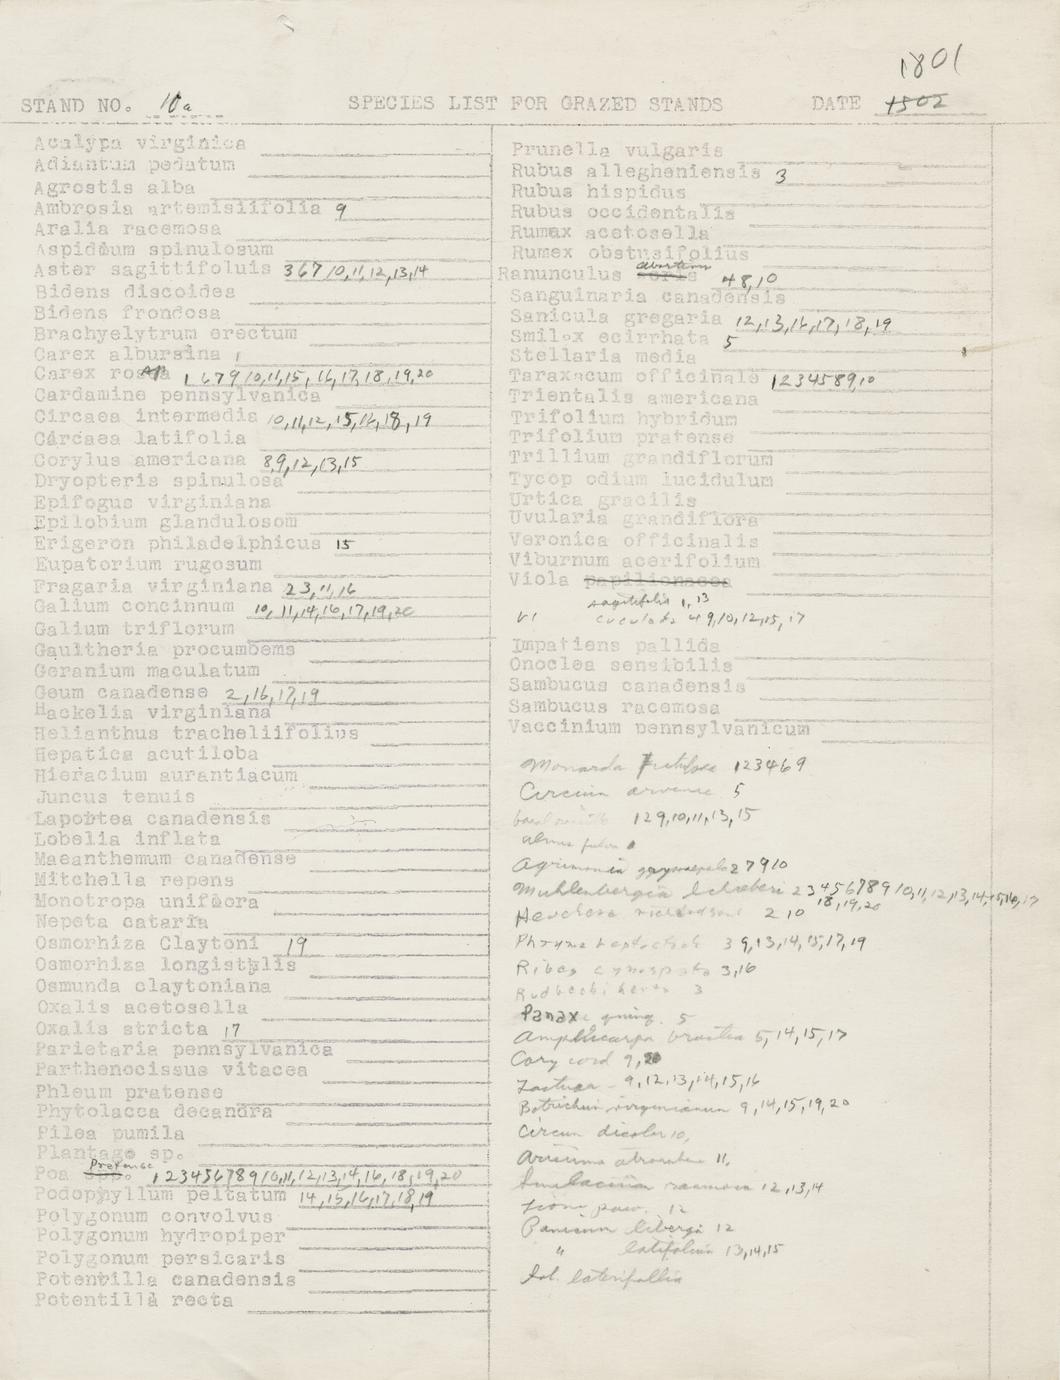 1801
STAND NO. 10a SPECIES LIST FOR GRAZED STANDS DATE 1502
Acalypa virginica
Adiantum pedatum
Agrostis alba
Ambrosia artemisiifolia 9
Aralia racemosa
Aspidium spinulosum
Aster sagittifoluis 3 6 7 10,11,12,13,14
Bidens discoides
Bidens frondosa
Brachyelytrum erectum
Carex albursina 1
Carex rosea 1 6 7 9 10,11,15, 16,17,18,19,20
Cardamine pennsylvanica
Circaea intermedia 10,11,12,15,16,18,19
Circaea latifolia
Corylus americana 8,9,12,13,15
Dryopteris spinulosa
Epifogus virginiana
Epilobium glandulosom
Erigeron philadelphicus 15
Eupatorium rugosum
Fragaria virginiana 2 3,11,16
Galium concinnum 10,11,14,16,17,19,20
Galium triflorum
Gaultheria procumbems
Geranium maculatum
Geum canadense 2,16,17,19
Hackelia virginiana
Helianthus tracheliifolius
Hepatica acutiloba
Hieracium aurantiacum
Juncus tenuis
Laportea canadensis
Lobelia inflata
Maeanthemum canadense
Mitchella repens
Monotropa uniflora
Nepeta cataria
Osmorhiza Claytoni 19
Osmorhiza longistylis
Osmunda claytoniana
Oxalis acetosella
Oxalis stricta 17
Parietaria pennsylvanica
Parthenocissus vitacea
Phleum pratense
Phytolacca decandra
Pilea pumila
Plantago sp.
Pretense
Poa spp. 1 2 3 4 5 6 7 8 9 10,11,12,13,14,16,18,19,20
Podophyllum peltatum 14,15,16,17,18,19
Polygonum convolvus
Polygonum hydropiper
Polygonum persicaris
Potentilla canadensis
Potentilla recta
Prunella vulgaris
Rubus allegheniensis 3
Rubus hispidus
Rubus occidentalis
Rumax acetosella
Rumex obstusifolius
abortivus
Ranunculus 4 8,10
Sanguinaria canadensis
Sanicula gregaria 12,13,16,17,18,19
Smilax ecirrhata 5
Stellaria media
Taraxacum officinale 1 2 3 4 5 8 9,10
Trientalis americana
Trifolium hybridum
Trifolium pratense
Trillium grandiflorum
Tycop odium lucidulum
Urtica gracilis
Uvularia grandiflora
Veronica officinalis
Viburnum acerifolium
Viola papilionacea
sagittifolia 1,13
VI cuculata 4 9,10,12,15,17
Impatiens pallida
Onoclea sensibilis
Sambucus canadensis
Sambucus racemosa
Vaccinium pennsylvanicum
Monarda 1 2 3 4 6 9
Circium arvense 5
1 2 9,10,11,13,15
Agrimonia gryposepala 2 7 9 10
Muhlenbergia Schreberi 2 3 4 5 6 7 8 9 10,11,12,13,14,15,16,17
18,19,20
Heuchera richardsoni 2 10
Phryma leptostach 3 9,13,14,15,17,19
Ribes cynosbati 3,16
Rudbecki hirta 3
Panax quinq. 5
Amphicarpa bractea 5,14,15,17
Cary cord 9,20
Lactuca - 9,12,13,14,15,16
Botrichium virginianum 9,14,15,19,20
Circium discolor 10,
Arisima atrorubens 11,
Smilacina racemosa 12,13,14
12
Panicum libergi 12
" latifolium 13,14,15
laterifollia